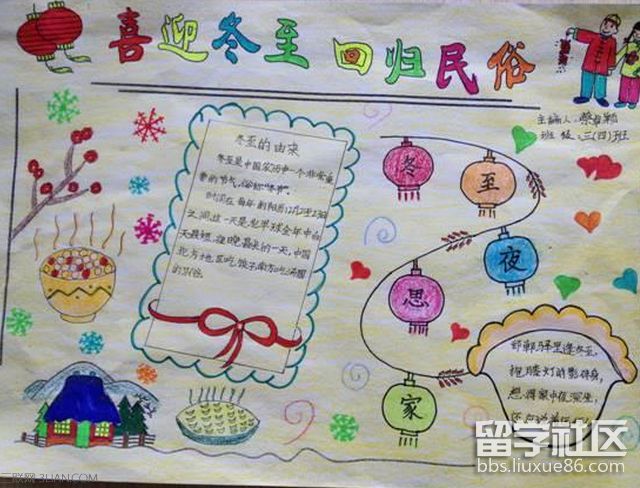 喜迎冬至 回归民俗
主编人:蔡
班级:三(四)班
冬至的由来
冬至是中国农历中一个非常重
要的节气,俗称"冬节"。
时间在每年的阳历12月21至23日
之间,这一天是北半球全年中白
天最短、夜晚最长的一天,中国
北方地区吃饺子南方吃汤圆
的习俗。
冬
至
夜
思
家
邯郸驿里逢冬至,
抱膝灯前影伴身,
想得家中夜深坐,
还应
留学社区
bbs.liuxue86.com
三联网 3LIAN.COM